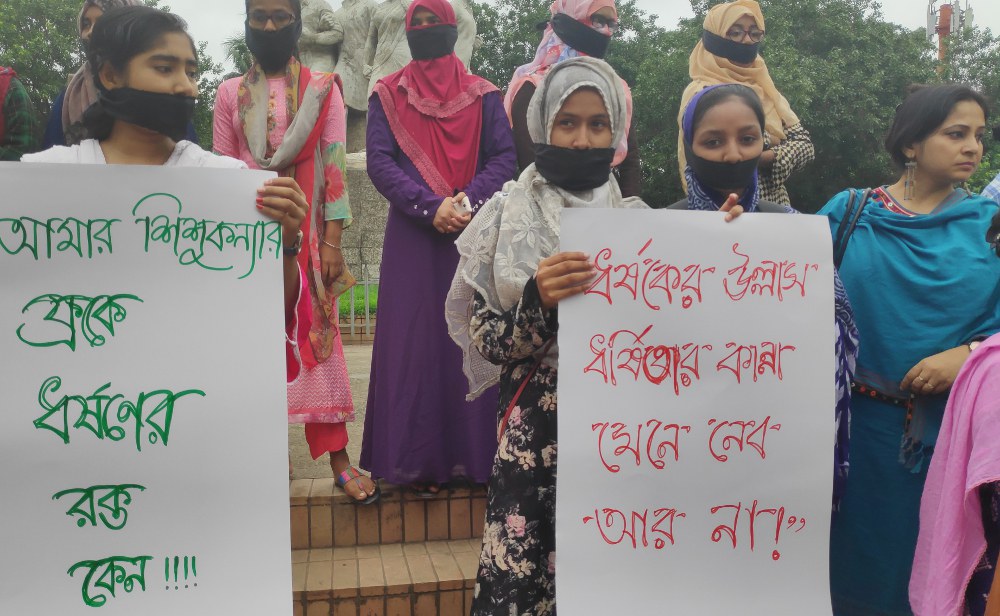 আমার শিশুকন্যার
ফ্রকে
ধর্ষণের
রক্ত
কেন !!!!
ধর্ষকের উল্লাস
ধর্ষিতার কান্না
মেনে নেব
আর না!”